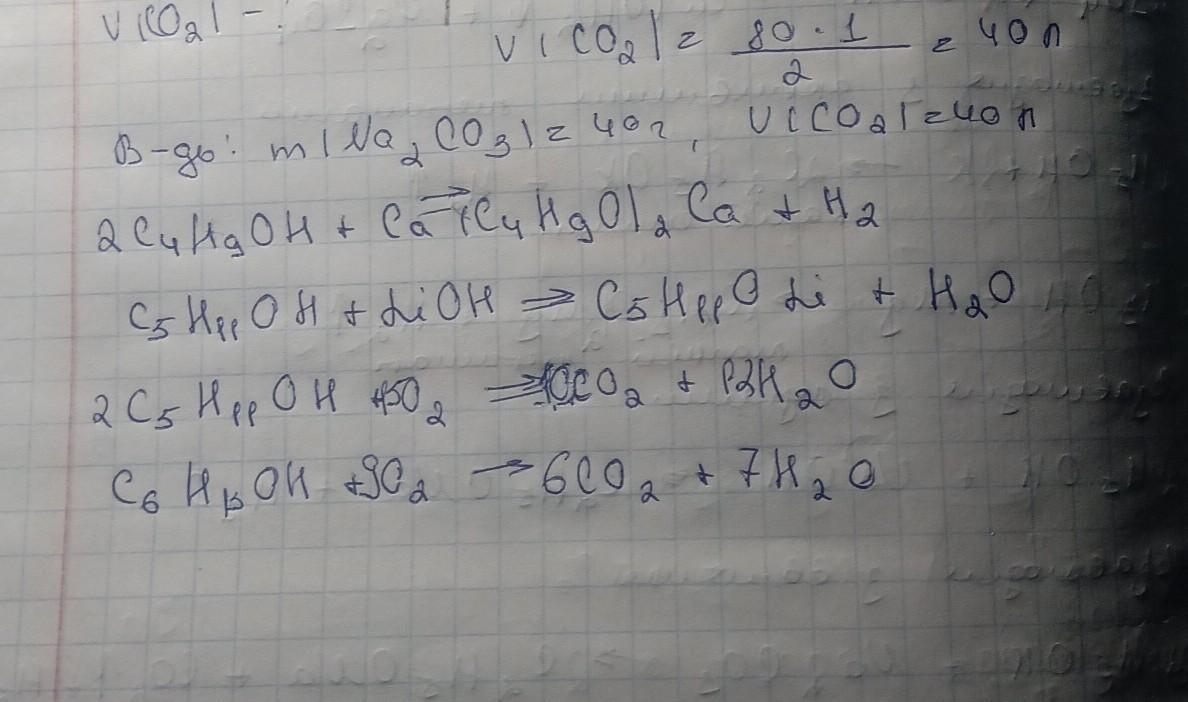 V(CO₂) -
V(CO₂) = 80 · 1 / 2 = 40 л
В-дь: m(Na₂CO₃) = 40г, V(CO₂) = 40 л
2C₄H₉OH + Ca → (C₄H₉O)₂Ca + H₂
C₅H₁₁OH + LiOH ⇒ C₅H₁₁OLi + H₂O
2C₅H₁₁OH + 15O₂ ⇒ 10CO₂ + 12H₂O
C₆H₁₃OH + 9O₂ → 6CO₂ + 7H₂O